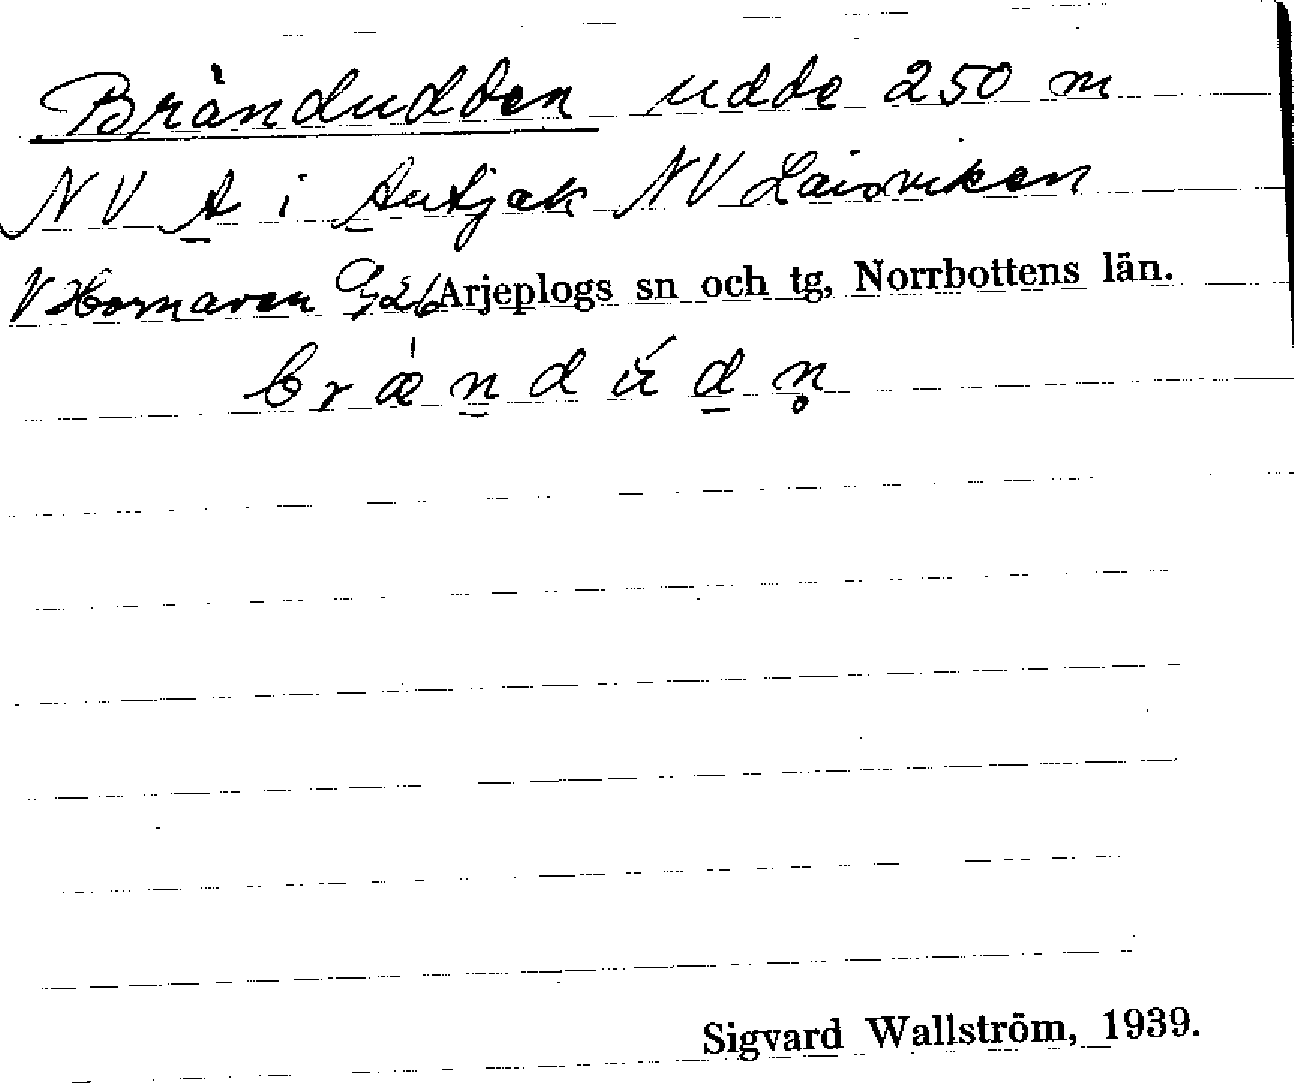 Brändudden udde 250 m
NV A i Autjak NV Laisviken
V Hornavan G26 Arjeplogs sn och tg, Norrbottens län.
brændúdn̥
Sigvard Wallström, 1939.